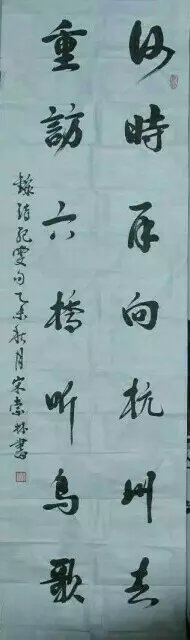 何時再向杭州去
重訪六橋听鳥歌
句乙未秋月宋崇林書